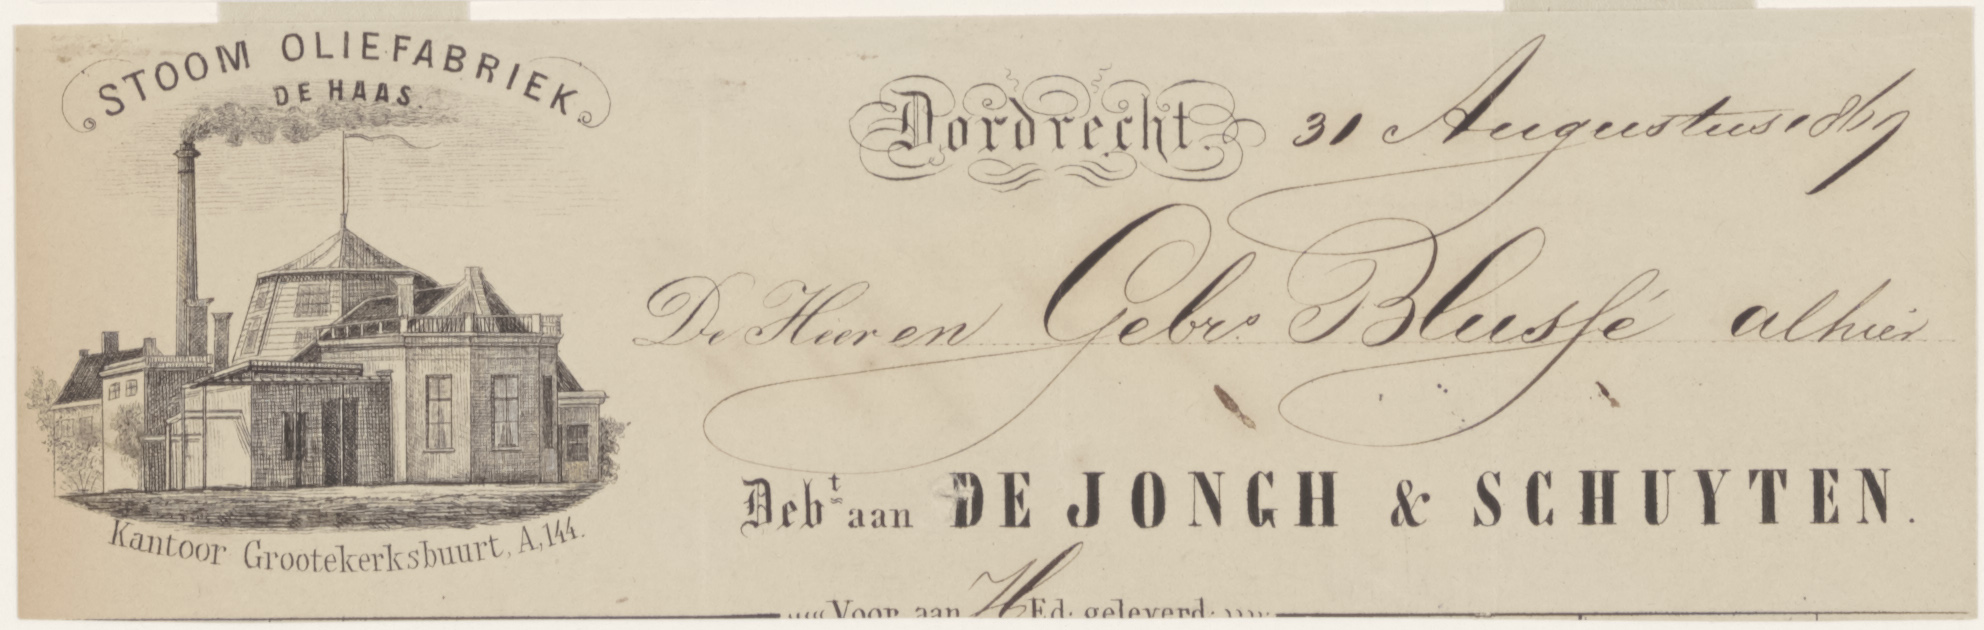 STOOM OLIEFABRIEK
DE HAAS.
Dordrecht. 31 Augustus 1867
De Heeren Gebrs. Blussé alhier
Debt aan DE JONGH & SCHUYTEN.
Kantoor Grootekerksbuurt, A, 144.
Voor aan HEd: geleverd: